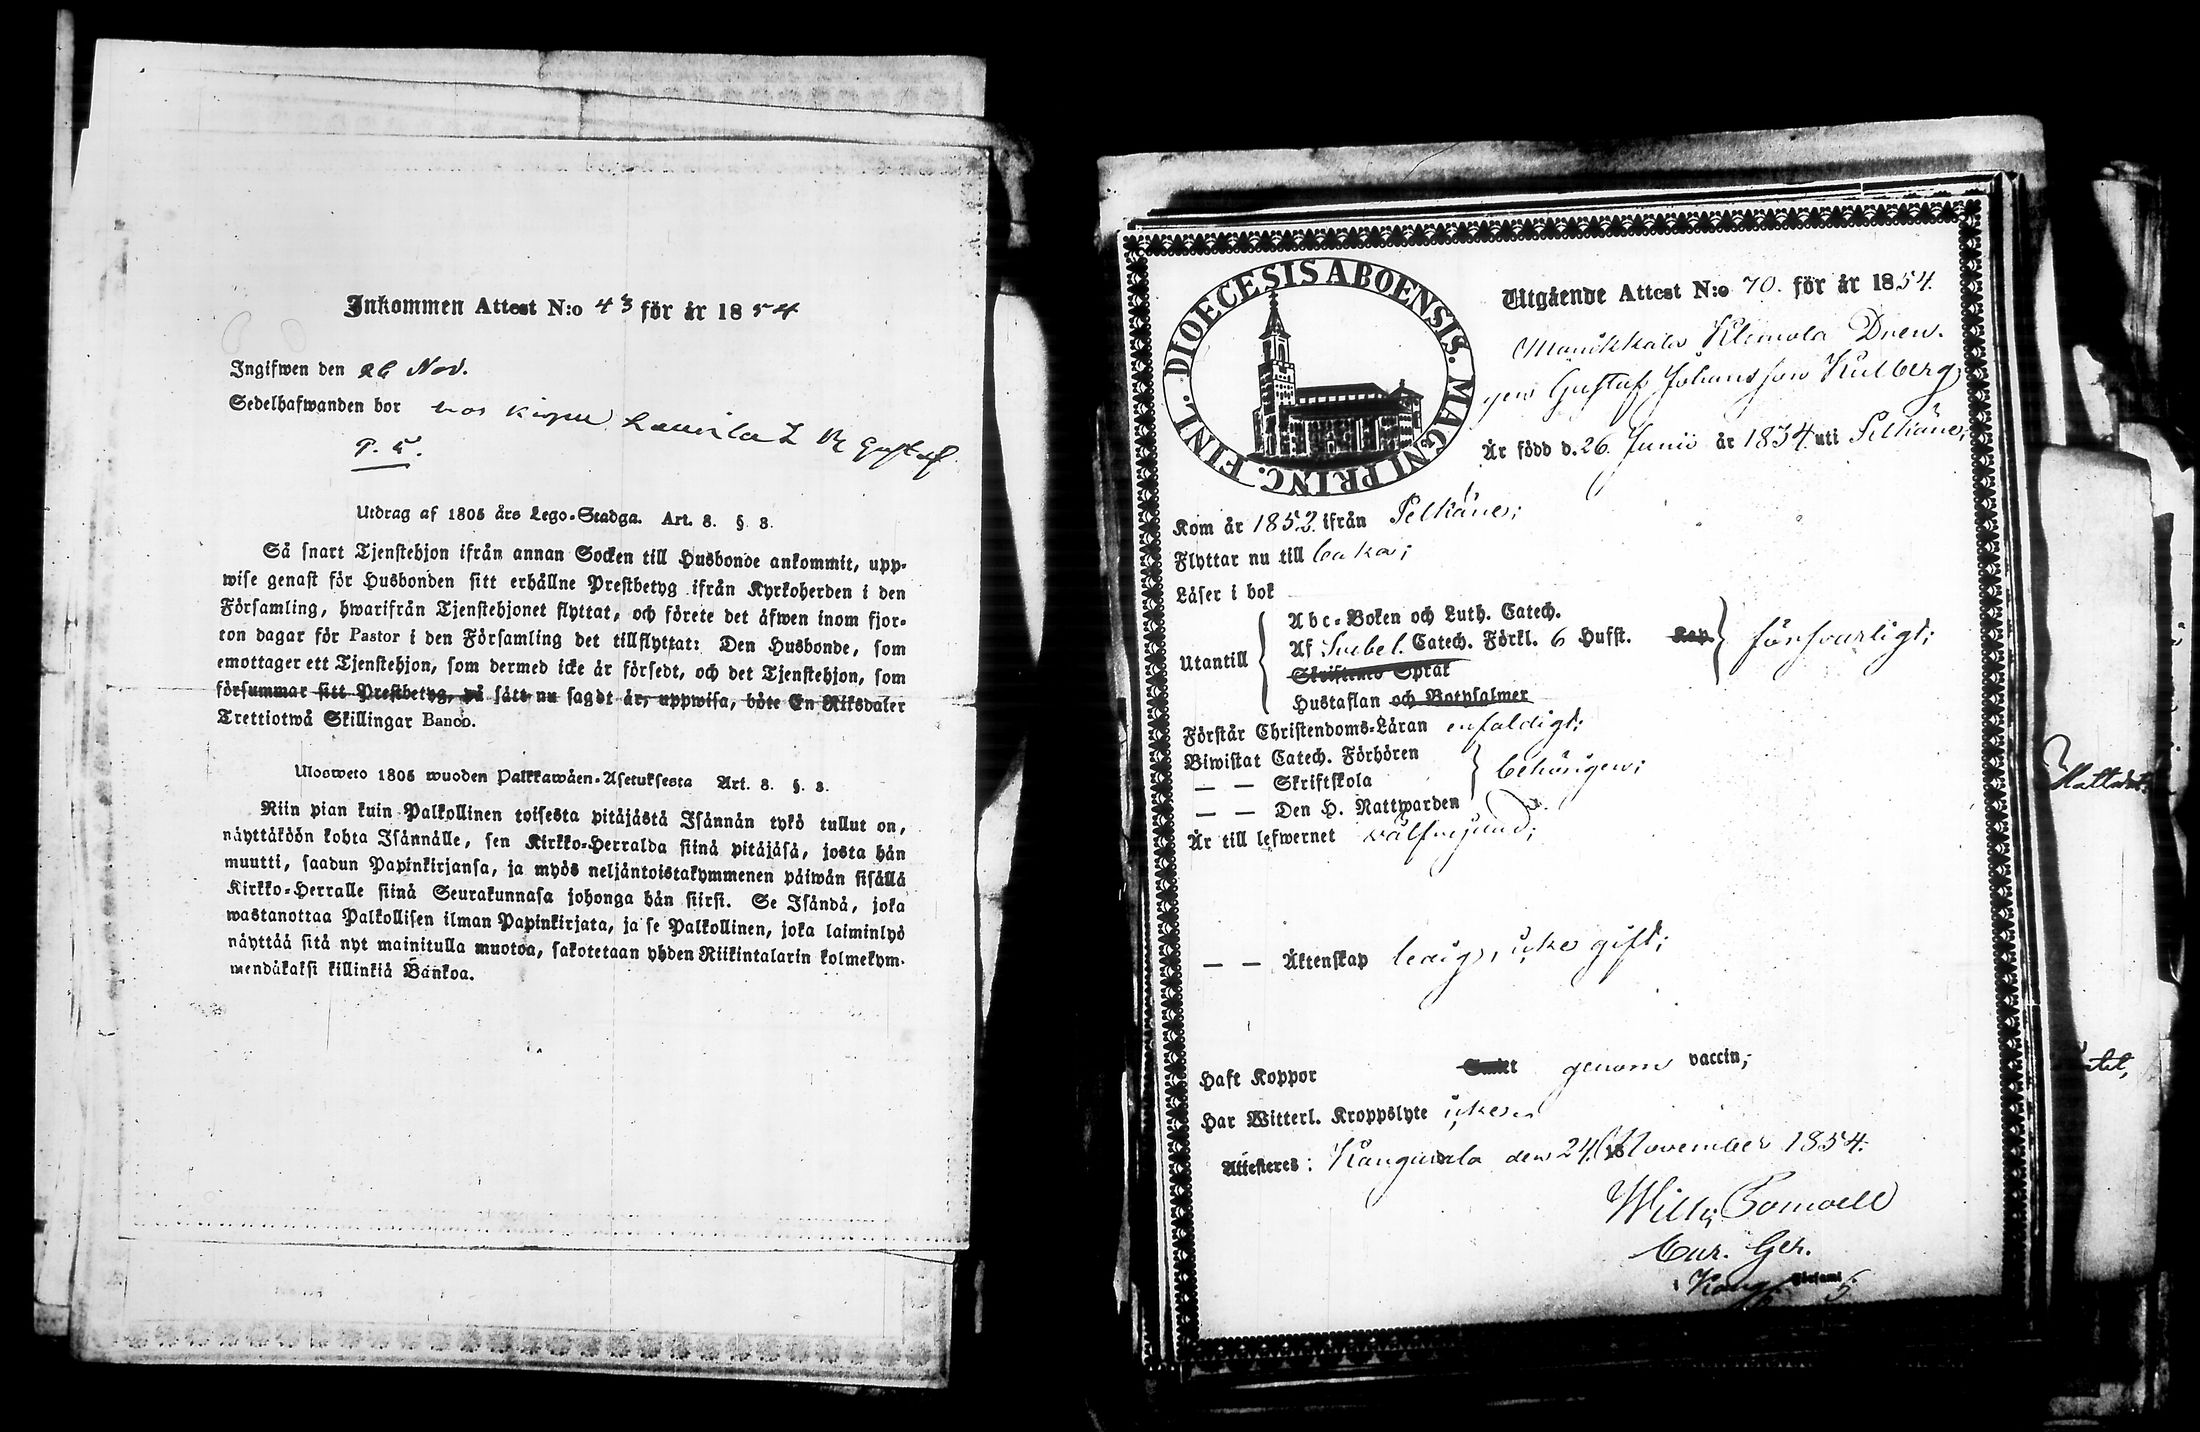 Inkommen Attest N:o 43 för år 1854
Ingifwen den 26 Nov.
Sedelhafwanden bor hos
Utdrag af 1805 års Lego-Stadga. Art. 8. § 3.
Så snart Tjenstehjon ifrån annan Socken till Husbonde ankommit, upp-
wise genast för Husbonden sitt erhållne Prestbetyg ifrån Kyrkoherden i den
Församling, hwarifrån Tjenstehjonet flyttat, och förete det äfwen inom fjor-
ton dagar för Pastor i den Församling det tillflyttat: Den Husbonde, som
emottager ett Tjenstehjon, som dermed icke är försedt, och det Tjenstehjon, som
försummar sitt Prestbetyg, på sätt nu sagdt är, uppwisa, böte En Riksdaler
Trettiotwå Skillingar Banco.
Ulosweto 1805 wuoden Palkkawäen-Asetuksesta Art. 8. §. 3.
Niin pian kuin Palkollinen toisesta pitäjästä Isännän tykö tullut on,
näyttäköön kohta Isännälle, sen Kirkko-Herralda siinä pitäjäsä, josta hän
muutti, saadun Papinkirjansa, ja myös neljäntoistakymmenen päiwän sisällä
Kirkko-Herralle siinä Seurakunnasa johonga hän siirsi. Se Isändä, joka
wastanottaa Palkollisen ilman Papinkirjata, ja se Palkollinen, joka laiminlyö
näyttää sitä nyt mainitulla muotoa, sakotetaan yhden Riikintalarin kolmekym-
mendäkaksi killinkiä Bankoa.
DIOECESIS ABOENSIS. MAGNI PRINC. FINL.
Utgående Attest N:o 70. för år 1854.
Dren-
gen Gustaf Johansson Kulberg,
Är född d. 26. Junii år 1834. uti Pelkäne;
Kom år 1852. ifrån Pelkäne;
Flyttar nu till
Läser i bok
Utantill
Abc-Boken och Luth. Catech.
Af Svebel. Catech. Förkl. 6 Hufst. Kap.
Skriftenes Språk
Hustaflan och Botpsalmer
försvarligt;
Förstår Christendoms-Läran enfaldigt;
Biwistat Catech. Förhören
— — Skriftskola
— — Den H. Nattwarden
behörigen;
Är till lefwernet välfrejdad;
— — Äktenskap ledig, icke gift;
Haft Koppor genom vaccin;
Har Witterl. Kroppslyte
Attesteres: Kangasala den 24 November 1854.